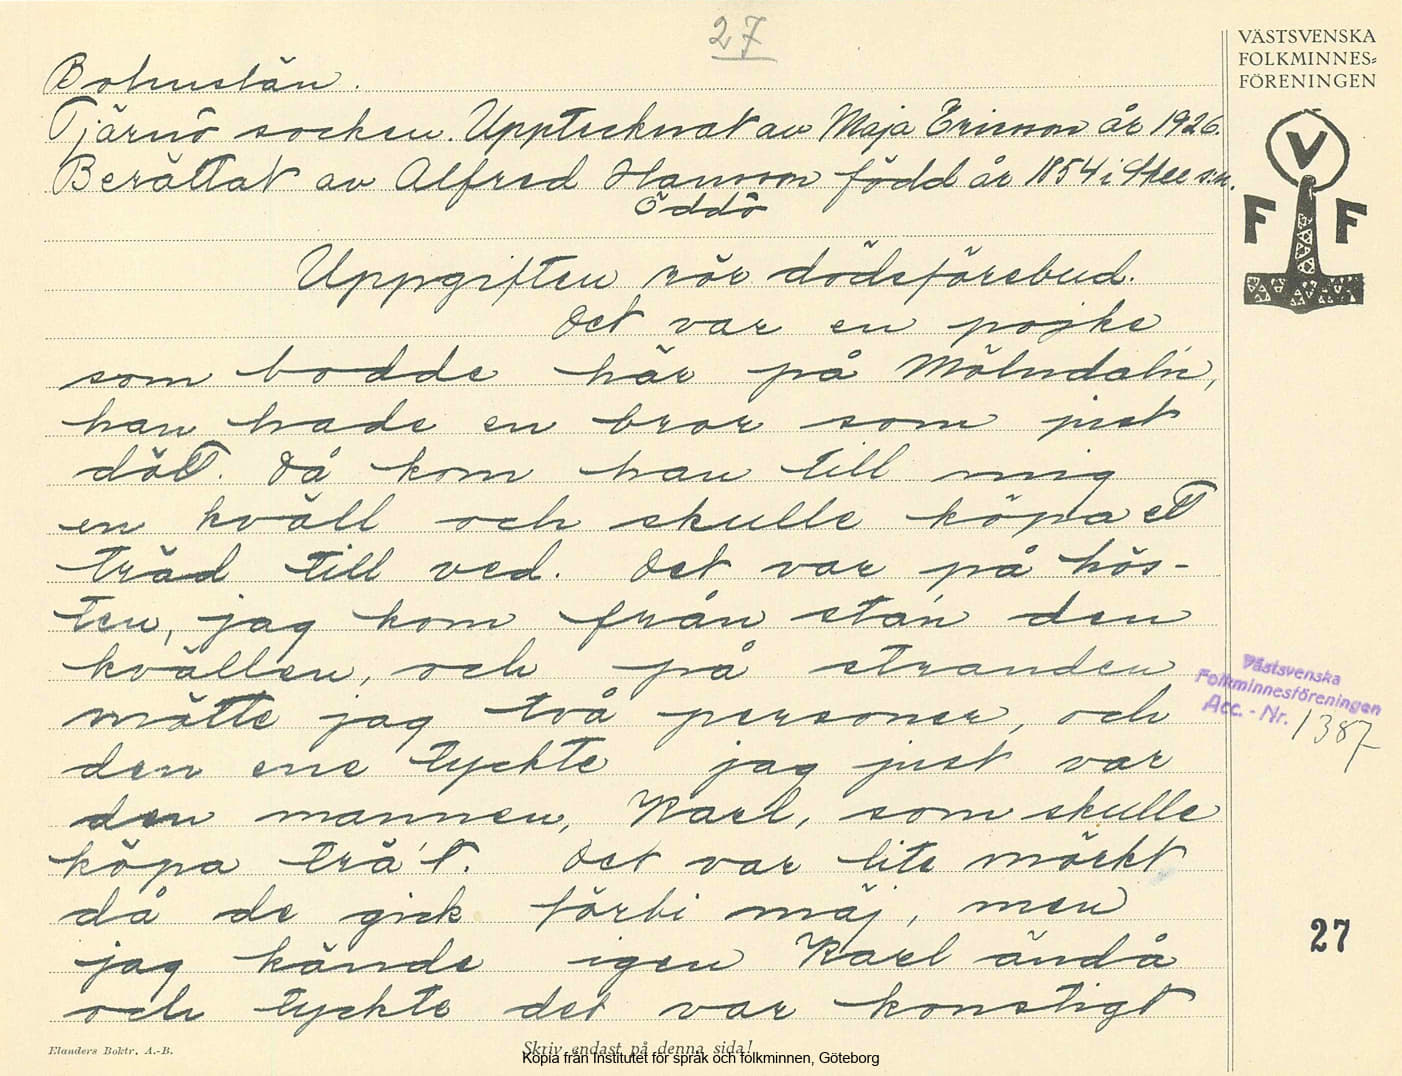 27
VÄSTSVENSKA
FOLKMINNES=
FÖRENINGEN
V
F F
Bohuslän.
Tjärnö socken. Upptecknat av Maja Ericson år 1926.
Berättat av Alfred Hansson född år 1854 i Skee sn.
Öddö
Uppgiften rör dödsförebud.
Det var en pojke
som bodde här på Mölndal'n,
han hade en bror som just
dött. Då kom han till mig
en kväll och skulle köpa ett
träd till ved. Det var på hös-
ten, jag kom från sta'n den
kvällen, och på stranden
mötte jag två personer, och
den ene tyckte jag just var
den mannen, Karl, som skulle
köpa trä't. Det var lite mörkt
då de gick förbi mäj, men
jag kände igen Karl ändå
och tyckte det var konstigt
Västsvenska
Folkminnesföreningen
Acc. - Nr. 1387
27
Elanders Boktr. A.-B.
Skriv endast på denna sida!
Kopia från Institutet för språk och folkminnen, Göteborg